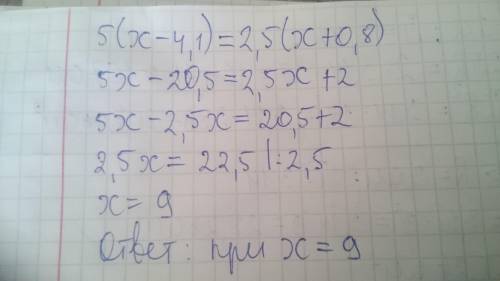 5(x-4,1)=2,5(x+0,8)
5x-20,5=2,5x+2
5x-2,5x=20,5+2
2,5x=22,5 |:2,5
x=9
Ответ: при x=9